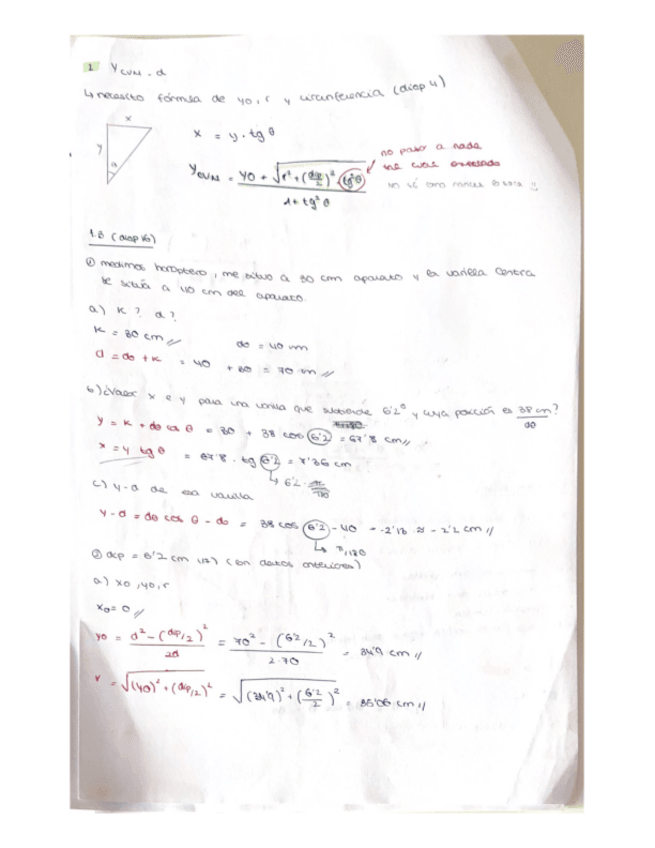 1 Y CVM - d
↳ necesito fórmula de yo, r y circunferencia (diap 4)
x
y
θ
x = y · tg θ
no paso a nada
YCVM = yo + √r² + (dip/2)² · tg²θ
1 + tg² θ
1.B (diap 16)
① medimos horóptero, me sitúo a 30 cm aparato y la varilla central
se sitúa a 40 cm del aparato.
a) K? d?
K = 30 cm // do = 40 cm
d = do + K = 40 + 30 = 70 cm //
b) ¿Valor x e y para una varilla que subtiende 6'2° y cuya posición es 38 cm?
dθ
y = K + dθ cos θ = 30 + 38 cos 6'2 = 67'8 cm //
x = y tg θ = 67'8 · tg 6'2 = 7'36 cm
↳ 6'2 · π/180
c) y-d de esa varilla
y-d = dθ cos θ - do = 38 cos 6'2 - 40 = -2'13 ≈ -2'2 cm //
↳ π/180
② dip = 6'2 cm (con datos anteriores)
a) xo, yo, r
xo = 0 //
yo = d² - (dip/2)² / 2d = 70² - (6'2/2)² / 2·70 = 34'9 cm //
r = √(yo)² + (dip/2)² = √(34'9)² + (6'2/2)² = 35'06 cm //